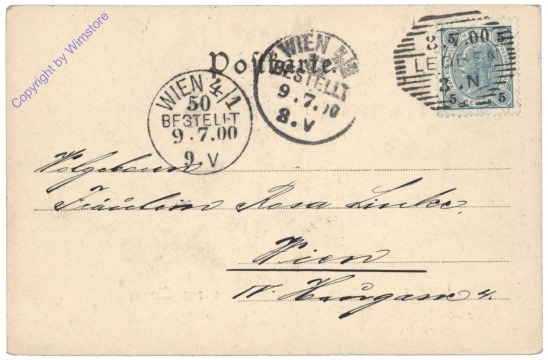 Copyright by Wimstore
Postkarte.
8 7.00
LEOBEN
3. N
5 5
5 5
WIEN
BESTELLT
9.7.00
8.V
WIEN 4/1
50
BESTELLT
9.7.00
9 V
Wolgeboren
Fräulein Rosa Linke,
Wien
IV. 4.